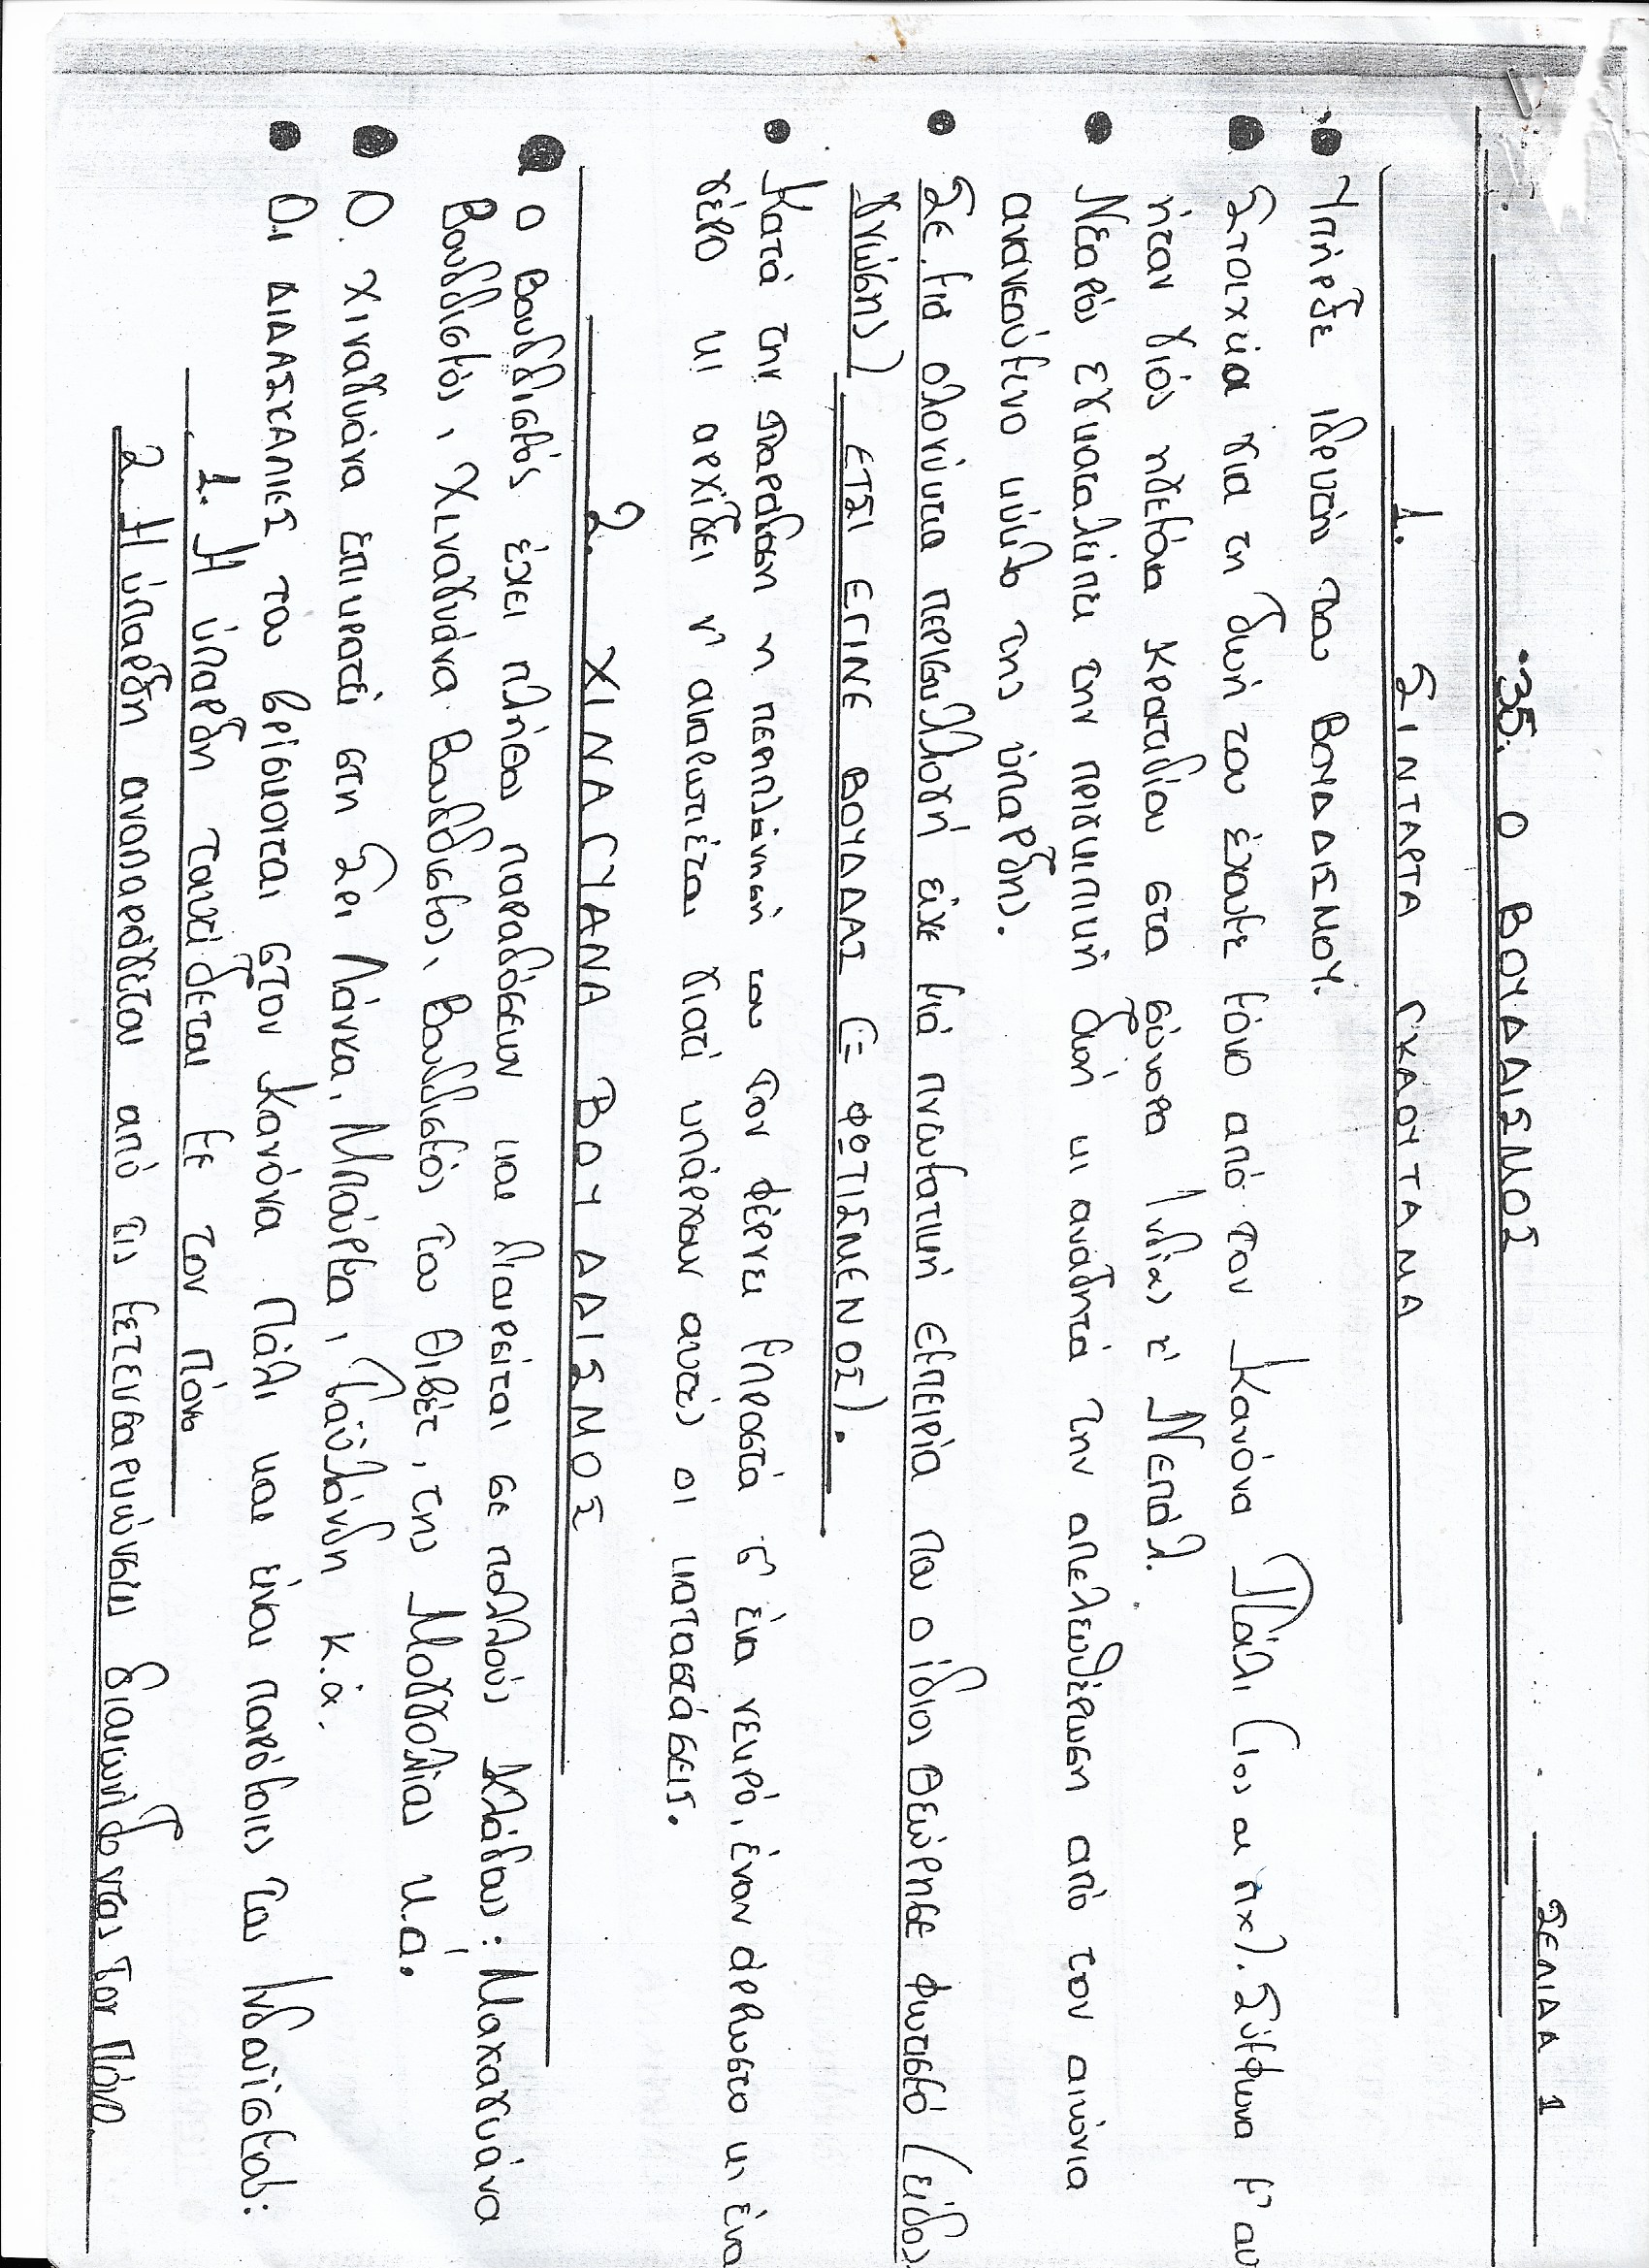 ΣΕΛΙΔΑ 1
35. Ο ΒΟΥΔΔΙΣΜΟΣ
1. ΣΙΝΤΑΡΤΑ ΓΚΑΟΥΤΑΜΑ
Υπήρξε ιδρυτής του ΒΟΥΔΔΙΣΜΟΥ.
Στοιχεία για τη ζωή του έχουμε μόνο από τον Κανόνα Πάλι (1ος αι πχ). Σύμφωνα μ' αυ
ήταν γιός ηγεμόνα Κρατιδίου στα σύνορα Ινδίας κ' Νεπάλ.
Νεαρός εγκαταλείπει την πριγκιπική ζωή κι αναζητά την απελευθέρωση από τον αιώνια
ανανεούμενο κύκλο της ύπαρξης.
Σε μια ολονύκτια περισυλλογή είχε μιά πνευματική εμπειρία που ο ίδιος θεώρησε φωτισμό (είδος
γνώσης) ΕΤΣΙ ΕΓΙΝΕ ΒΟΥΔΔΑΣ (= ΦΩΤΙΣΜΕΝΟΣ).
Κατά την παράδοση η περιπλάνησή του τον φέρνει μπροστά σ' ένα νεκρό, έναν άρρωστο κι ένα
γέρο κι αρχίζει ν' αναρωτιέται γιατί υπάρχουν αυτές οι καταστάσεις.
2. ΧΙΝΑΓΥΑΝΑ ΒΟΥΔΔΙΣΜΟΣ
Ο Βουδδισμός έχει πλήθος παραδόσεων και διαιρείται σε πολλούς κλάδους: Μαχαγυάνα
Βουδδισμός, Χιναγυάνα Βουδδισμός, Βουδδισμός του Θιβέτ, της Μογγολίας κ.ά.
Ο Χιναγυάνα επικρατεί στη Σρι Λάνκα, Μπούρμα, Ταϋλάνδη κ.ά.
Οι ΔΙΔΑΣΚΑΛΙΕΣ του βρίσκονται στον Κανόνα Πάλι και είναι παρόμοιες του Ινδουϊσμού:
1. Η ύπαρξη ταυτίζεται με τον πόνο
2. Η ύπαρξη αναπαράγεται από τις μετενσαρκώσεις διαιωνίζοντας τον πόνο.